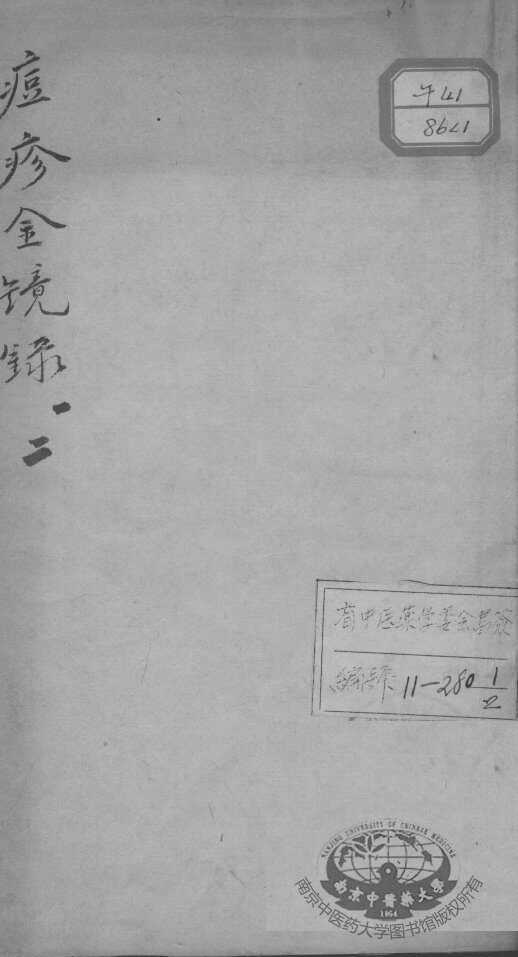 痘疹金镜録
一
二
午41
1798
省中医药学委会募造
编号 11-280 1/2
NANJING UNIVERSITY OF CHINESE MEDICINE
南京中醫藥大學
1954
南京中医药大学图书馆版权所有